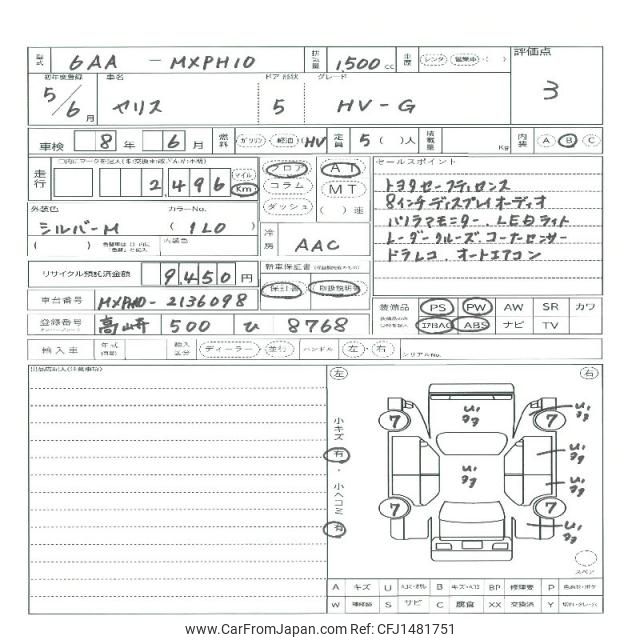 型式 6AA - MXPH10 排気量 1500 cc 車歴 レンタ・営業車・( ) 評価点
3
初年度登録 5/6月 車名 ヤリス ドア 形状 5 グレード HV-G
車検 8年 6月 燃料 ガソリン・軽油・HV 定員 5 ( )人 積載量 Kg 内装 A B C
走行 2,496 マイル Km フロア コラム ダッシュ AT MT ( )速
セールスポイント
トヨタセーフティセンス
8インチディスプレイオーディオ
パノラマモニター.LEDライト
レーダークルーズ.コーナーセンサー
ドラレコ.オートエアコン
外装色 シルバーM カラーNo. (1L0)
( ) 内装色 冷房 AAC
リサイクル預託済金額 9,450円 新車保証書 保証書 取扱説明書
車台番号 MXPH10-2136098
装備品 PS PW AW SR カワ
エアBAG ABS ナビ TV
登録番号 高崎 500 ひ 8768
輸入車 年式 輸入区分 ディーラー・並行 ハンドル 左・右 シリアルNo.
左 右
小キズ 有・小ヘコミ 有
7 7
7 7
スペア
A キズ U B キズ・ヘコミ BP 修理要 P
W 補修跡 S サビ C 腐食 XX 交換済 Y
www.CarFromJapan.com - Ref:CFJ1481751